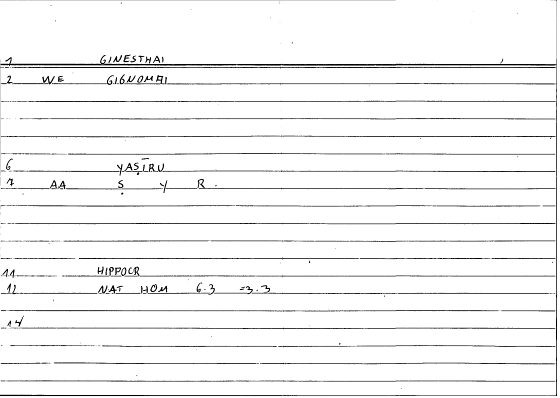 1 GINESTHAI
2 WE GIGNOMAI
6 YAṢĪRU
7 AA Ṣ Y R.
11 HIPPOCR
12 NAT HOM 6.3 =3.3
14